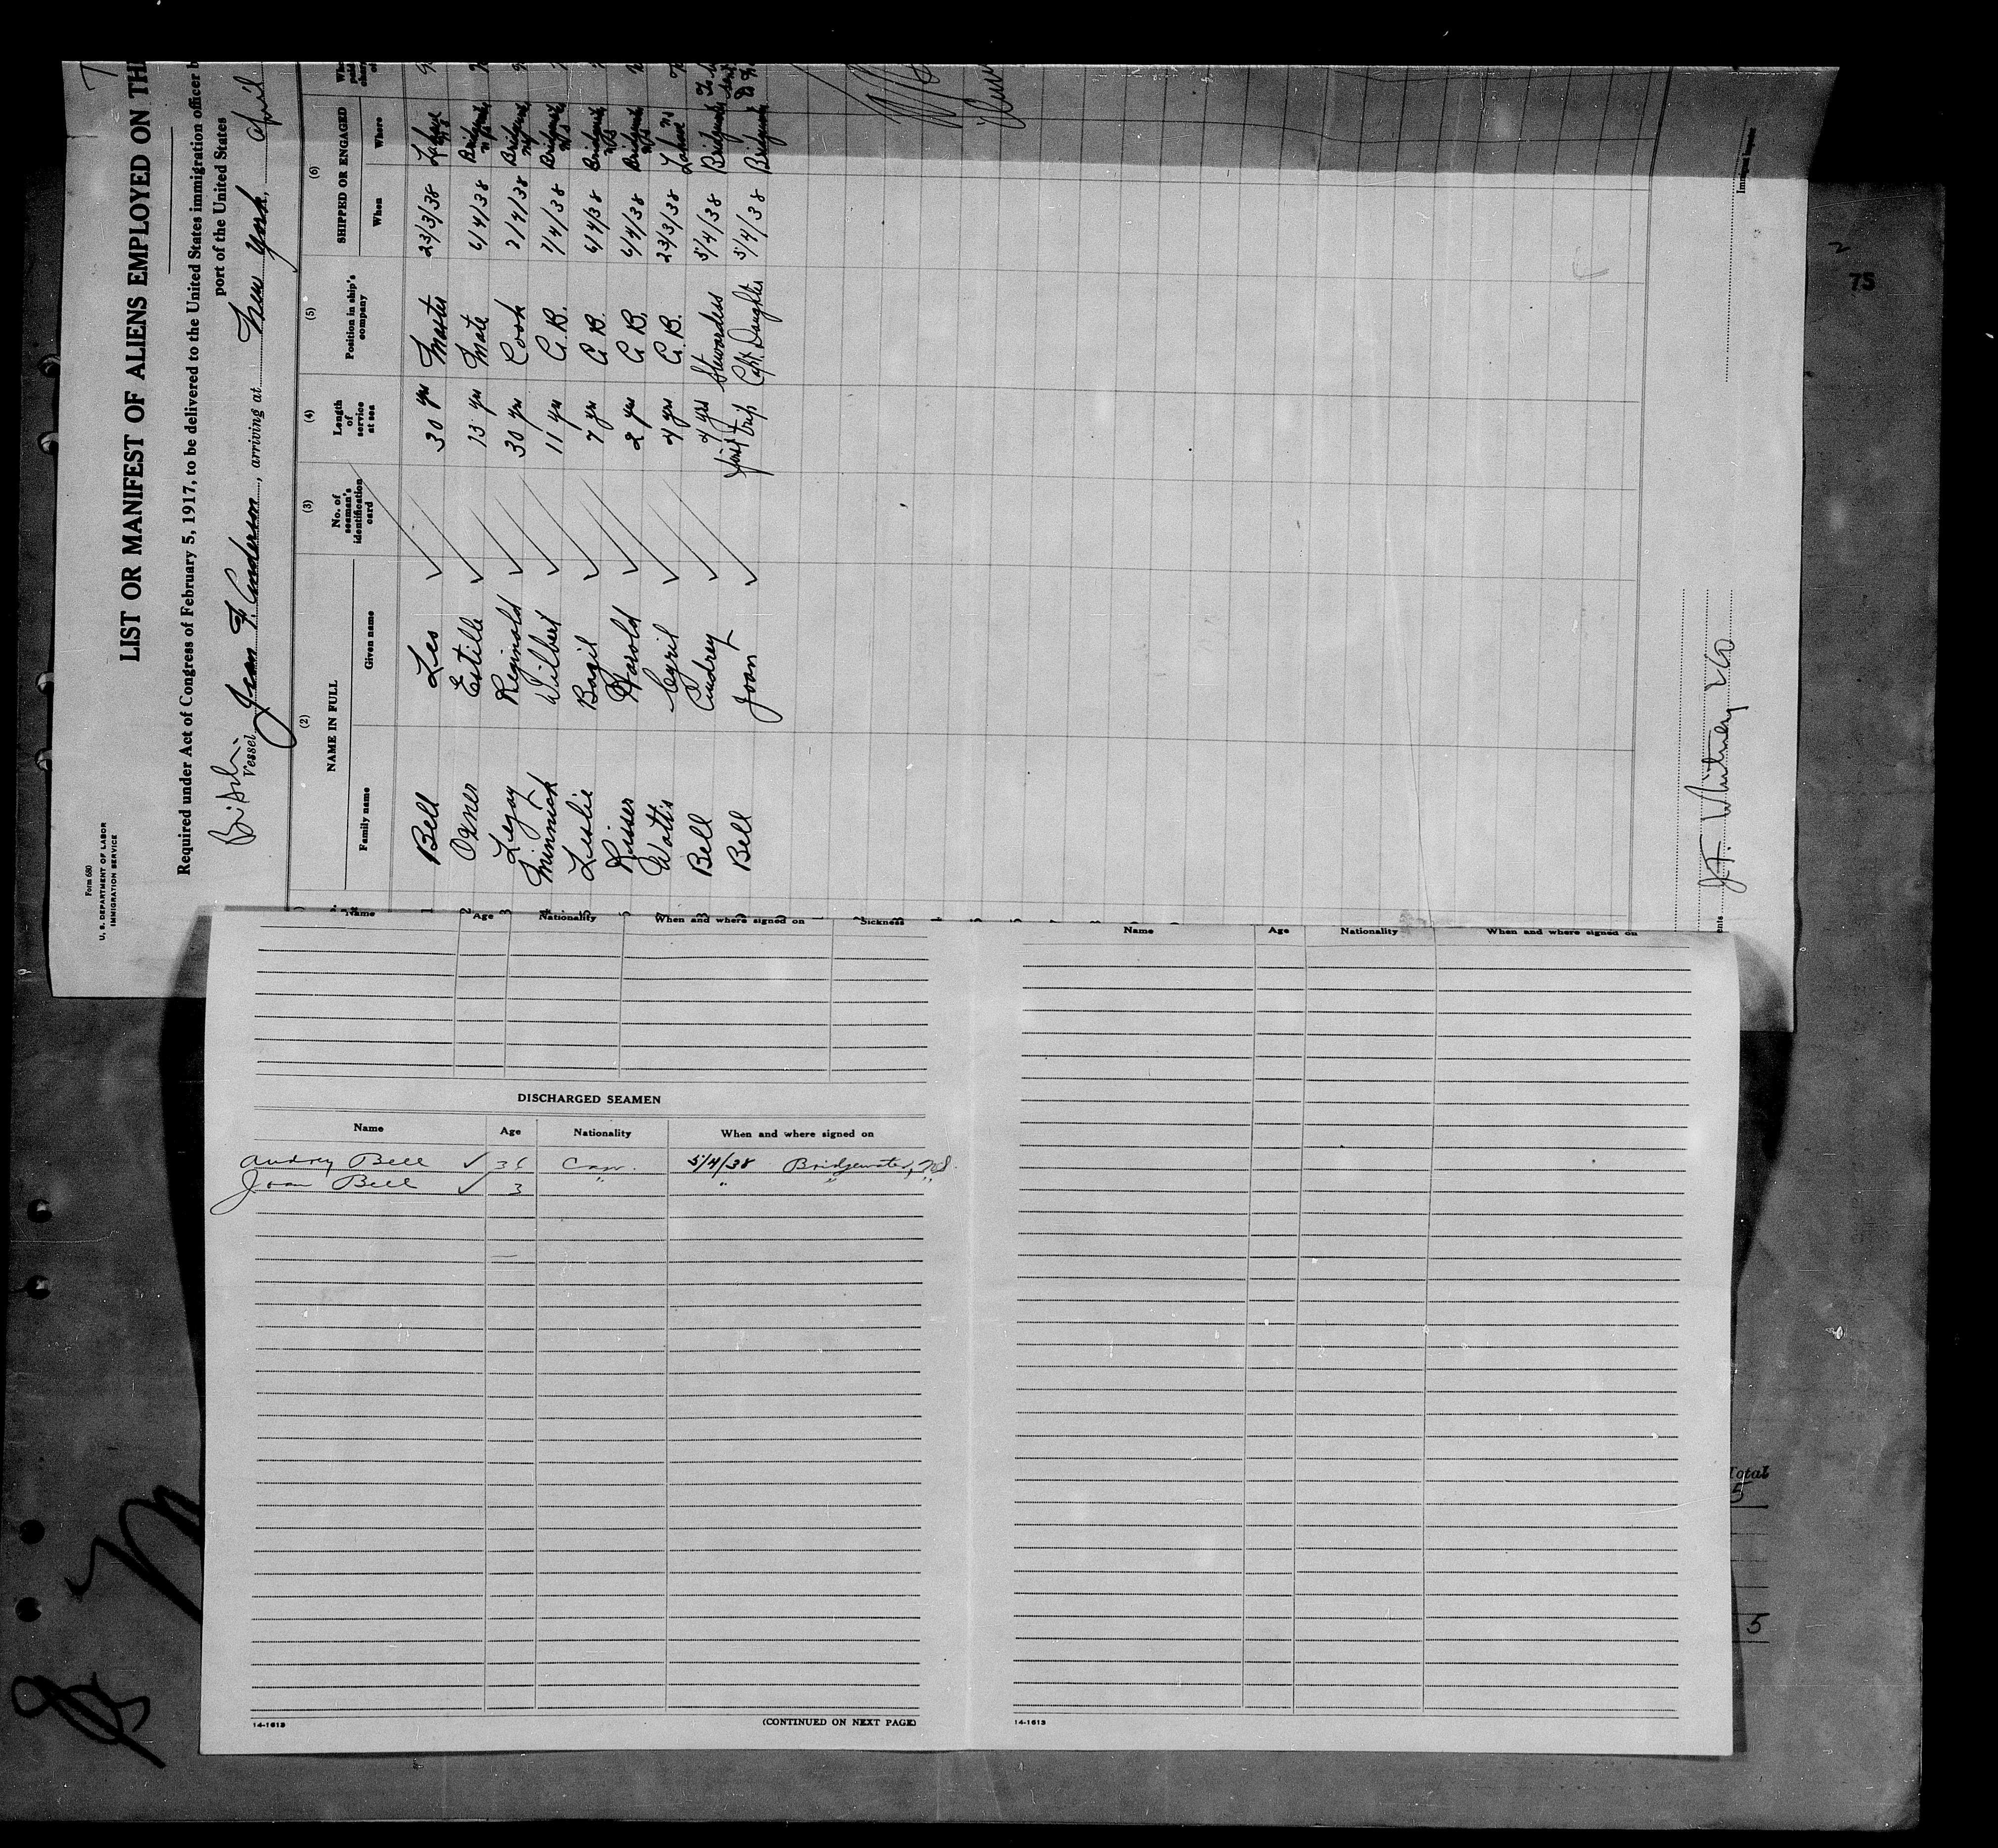 Form 680
U. S. DEPARTMENT OF LABOR
IMMIGRATION SERVICE
LIST OR MANIFEST OF ALIENS EMPLOYED ON TH
Required under Act of Congress of February 5, 1917, to be delivered to the United States immigration officer b
port of the United States
Vessel Jean F. Anderson, arriving at New York, April
(2) (3) (4) (5) (6)
NAME IN FULL No. of seaman's identification card Length of service at sea Position in ship's company SHIPPED OR ENGAGED
Family name Given name When Where
1 Bell Leo 30 yrs Master 23/3/38 Lahave
2 Oxner Estille 13 yrs Mate 6/4/38
3 Legay Reginold 30 yrs Cook 7/4/38
4 Minnick Wilbert 11 yrs A.B. 7/4/38
5 Leslie Bazil 7 yrs A.B. 6/4/38
Risser Harold 2 yrs A.B. 6/4/38
Watts Cyril 4 yrs A.B. 23/3/38 Lahave NS
Bell Audrey 4 yrs Stewardess 5/4/38
Bell Joan first trip Capt. Daughter 5/4/38
J.F. Whitney & Co
Immigrant Inspector
2
75
Name Age Nationality When and where signed on Sickness
DISCHARGED SEAMEN
Name Age Nationality When and where signed on
Audrey Bell ✓ Can. 5/4/38 Bridgewater, N.S.
Joan Bell ✓ 3 " " " "
14-1613 (CONTINUED ON NEXT PAGE)
Name Age Nationality When and where signed on
14-1613
Total
5
5